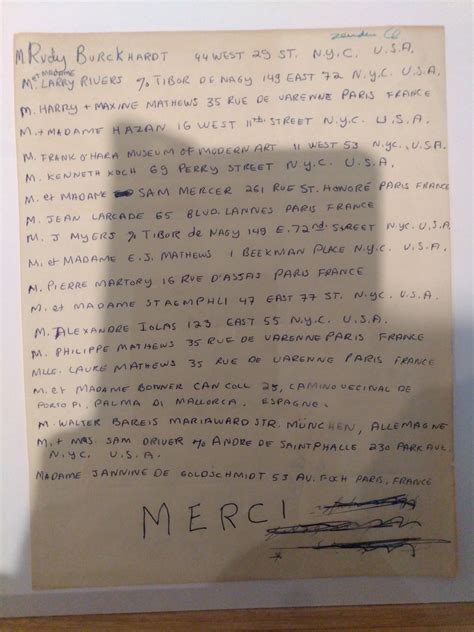 zenden
M. Rudy BURCKHARDT 44 WEST 29 ST. N.Y.C. U.S.A.
M. et MADAME LARRY RIVERS % TIBOR DE NAGY 149 EAST 72 N.Y.C. U.S.A.
M. HARRY + MAXINE MATHEWS 35 RUE DE VARENNE PARIS FRANCE
M. + MADAME HAZAN 16 WEST 11th STREET N.Y.C. U.S.A.
M. FRANK O'HARA MUSEUM OF MODERN ART 11 WEST 53 N.YC. U.S.A.
M. KENNETH KOCH 69 PERRY STREET N.Y.C. U.S.A.
M. et MADAME SAM MERCER 261 RUE ST. HONORÉ PARIS FRANCE
M. JEAN LARCADE 65 BLVD. LANNES PARIS FRANCE
M. J MYERS % TIBOR de NAGY 149 E. 72nd STREET N.Y.C. U.S.A.
M. et MADAME E.S. MATHEWS 1 BEEKMAN PLACE N.Y.C. U.S.A.
M. PIERRE MARTORY 16 RUE D'ASSAS PARIS FRANCE
M. et MADAME STAEMPHLI 47 EAST 77 ST. N.YC. U.S.A.
M. ALEXANDRE IOLAS 123 EAST 55 N.Y.C. U.S.A.
M. PHILIPPE MATHEWS 35 RUE DE VARENNE PARIS FRANCE
MLLE. LAURE MATHEWS 35 RUE DE VARENNE PARIS FRANCE
M. et MADAME BONNER CAN COLL 25, CAMINO VECINAL DE
PORTO PI, PALMA DI MALLORCA, ESPAGNE.
M. WALTER BAREIS MARIAWARD STR. MÜNCHEN, ALLEMAGNE
M. + MRS. SAM DRIVER % ANDRE DE SAINT PHALLE 230 PARK AVE
N.Y.C. U.S.A.
MADAME JANNINE DE GOLDSCHMIDT 53 AV. FOCH PARIS, FRANCE
MERCI